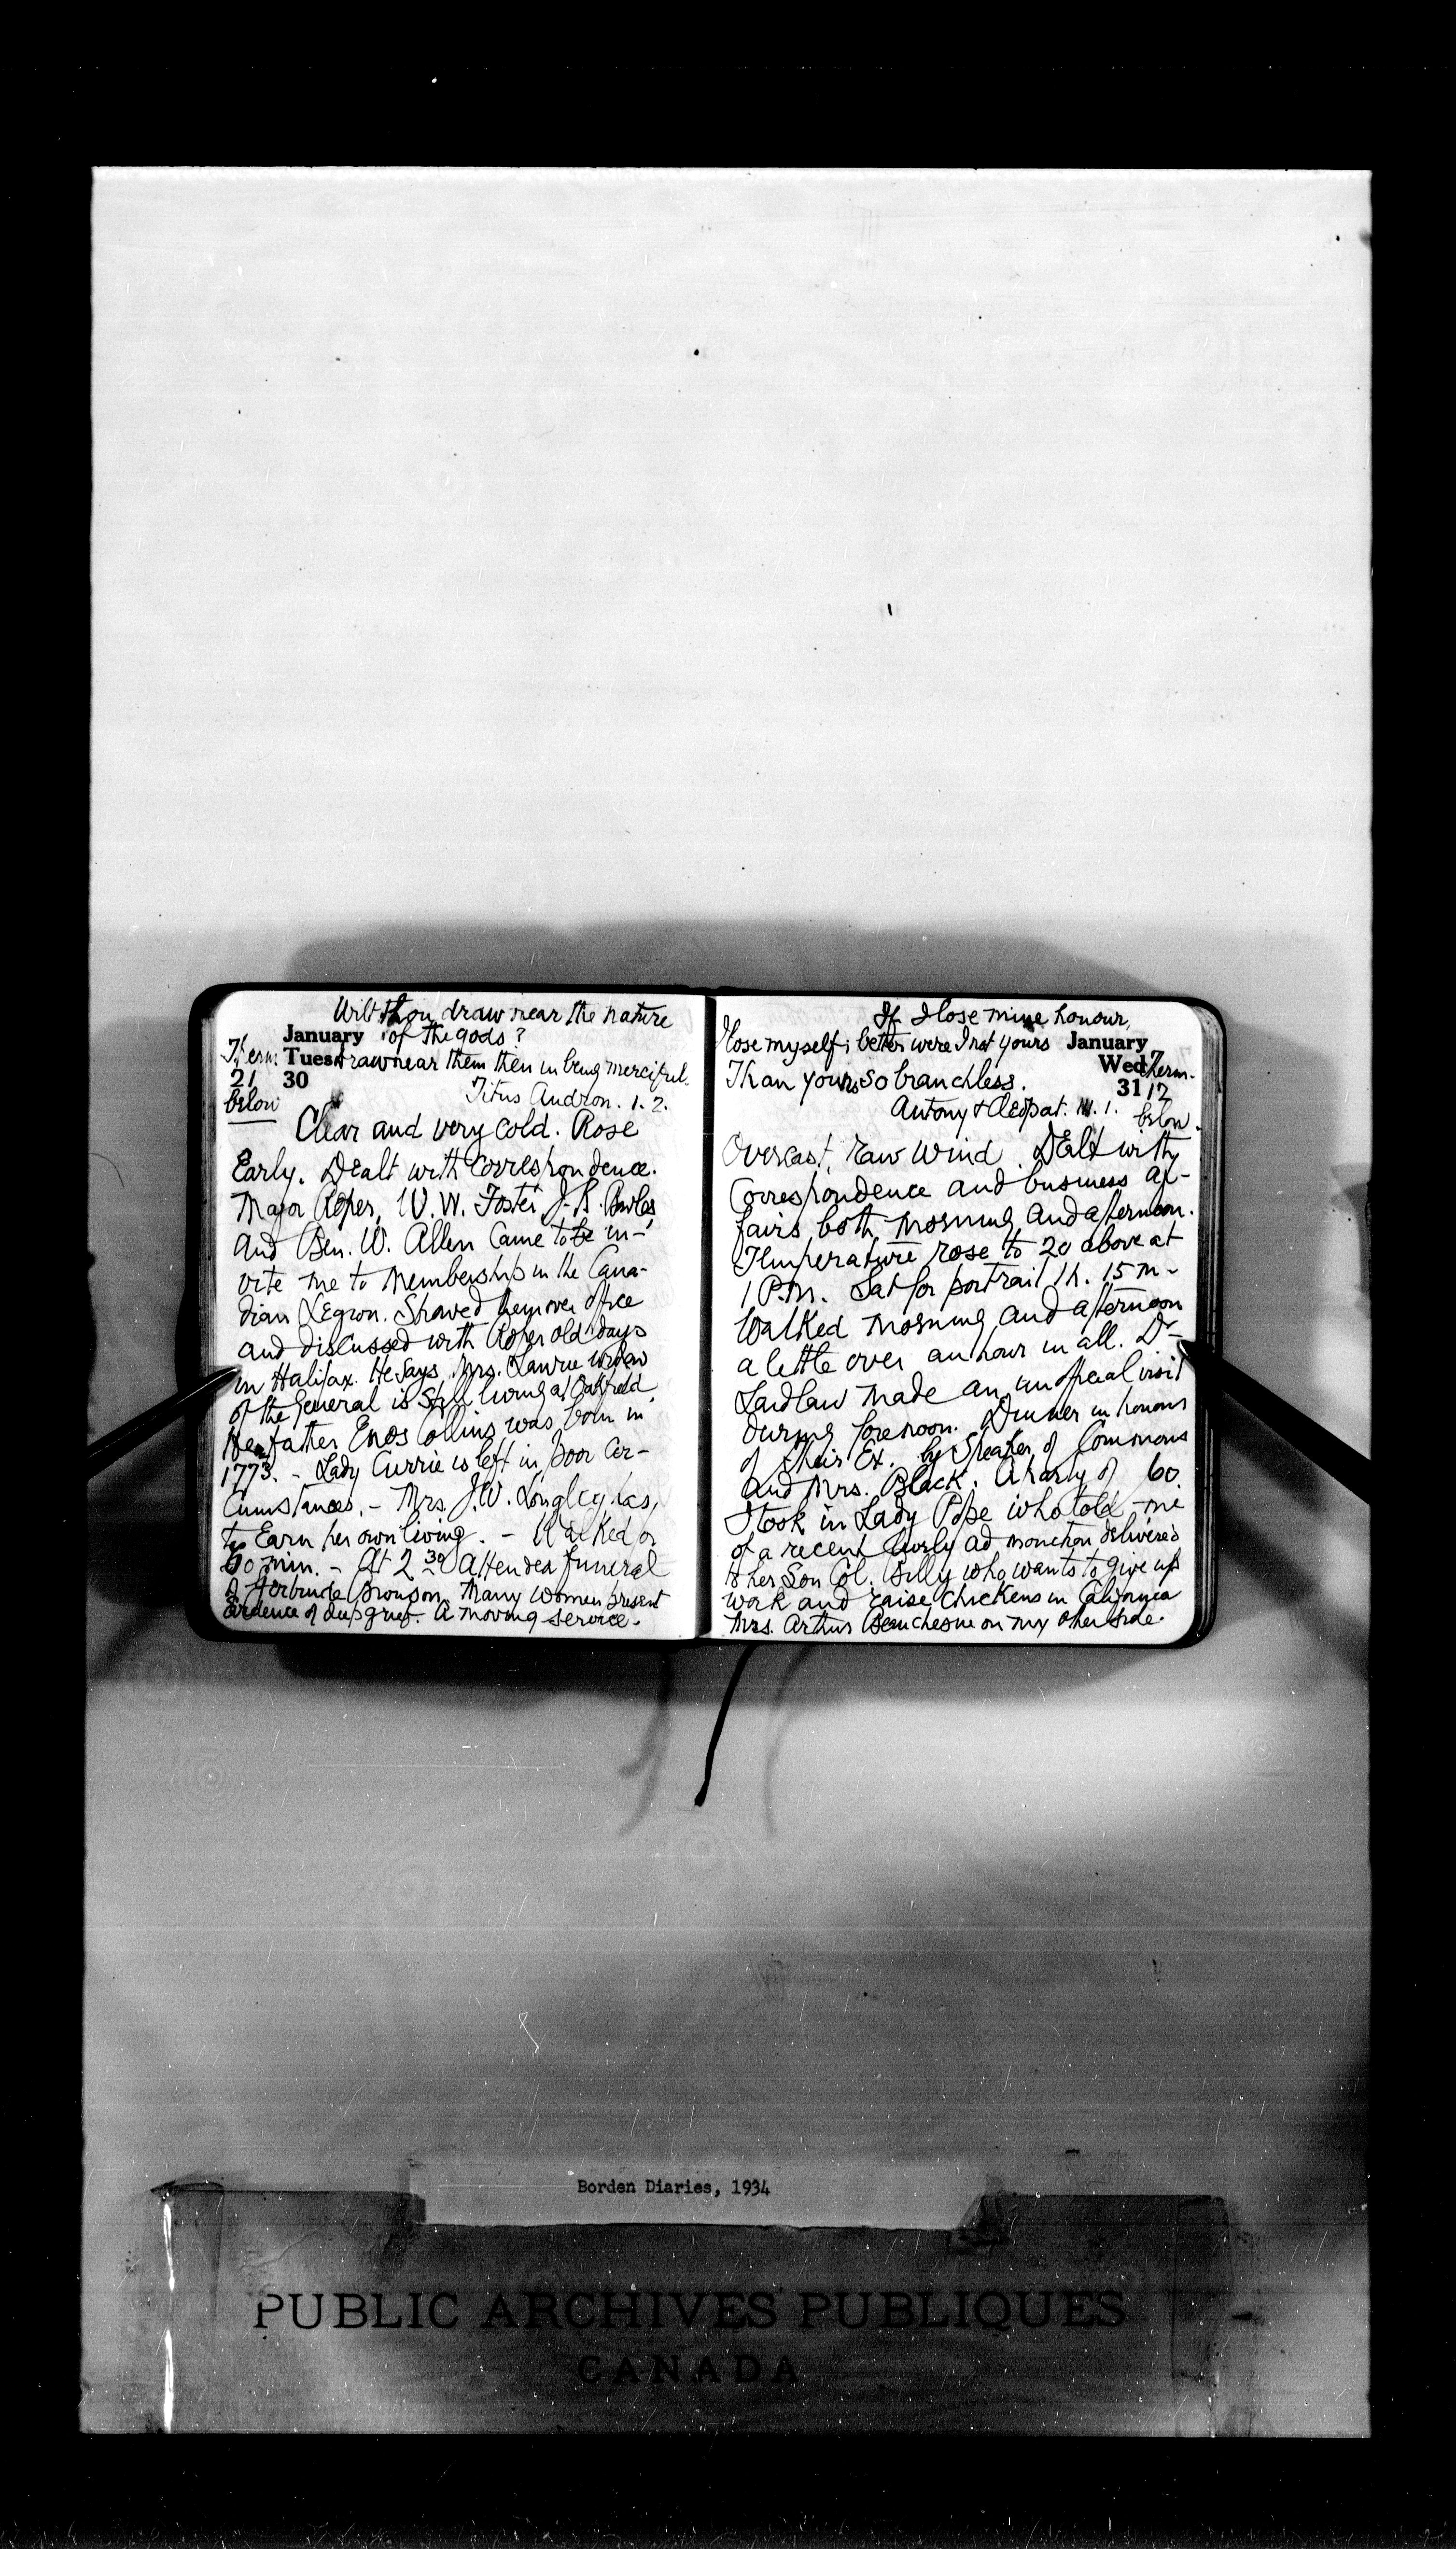 Wilt thou draw near the nature
January of the gods?
Therm: Tues Draw near them then in being merciful.
21 30
Titus Andron. 1. 2.
below
Clear and very cold. Rose
Early. Dealt with correspondence.
Major Roper, W. W. Foster J. R. Bowles
and Ben. W. Allen Came to be in-
vite me to Membership in the Cana-
dian Legion. Showed them over office
and discussed with Roper old days
in Halifax. He says Mrs. Laurie widow
of the General is still living at Oakfield
Her father Enos Collins was born in
1773. - Lady Currie is left in poor Cir-
cumstances. - Mrs. J.W. Longley has
to Earn her own living. - Walked
60 min. - At 2 30 Attended funeral
of Gertrude Bronson. Many women present
Evidence of deep grief. A moving service.
If I lose mine honour,
I lose myself; better were I not yours January
Than yours so branchless. Wed Therm.
31 12
Antony & Cleopat. III. 1. below.
Overcast, raw wind. Dealt with
Correspondence and business af-
fairs both morning and afternoon.
Temperature rose to 20 above at
1 P.M. Sat for portrait 1 h. 15 m -
Walked morning and afternoon
a little over an hour in all. Dr
Laidlaw made an unofficial visit
during forenoon. Dinner in honour
of Their Ex. by Speaker of Commons
and Mrs. Black. A party of 60.
I took in Lady Pope who told me
of a recent curly ad monition delivered
to her Son Col. Billy who wants to give up
work and raise chickens in California
Mrs. Arthur Beauchesne on my other side.
Borden Diaries, 1934
PUBLIC ARCHIVES PUBLIQUES
CANADA